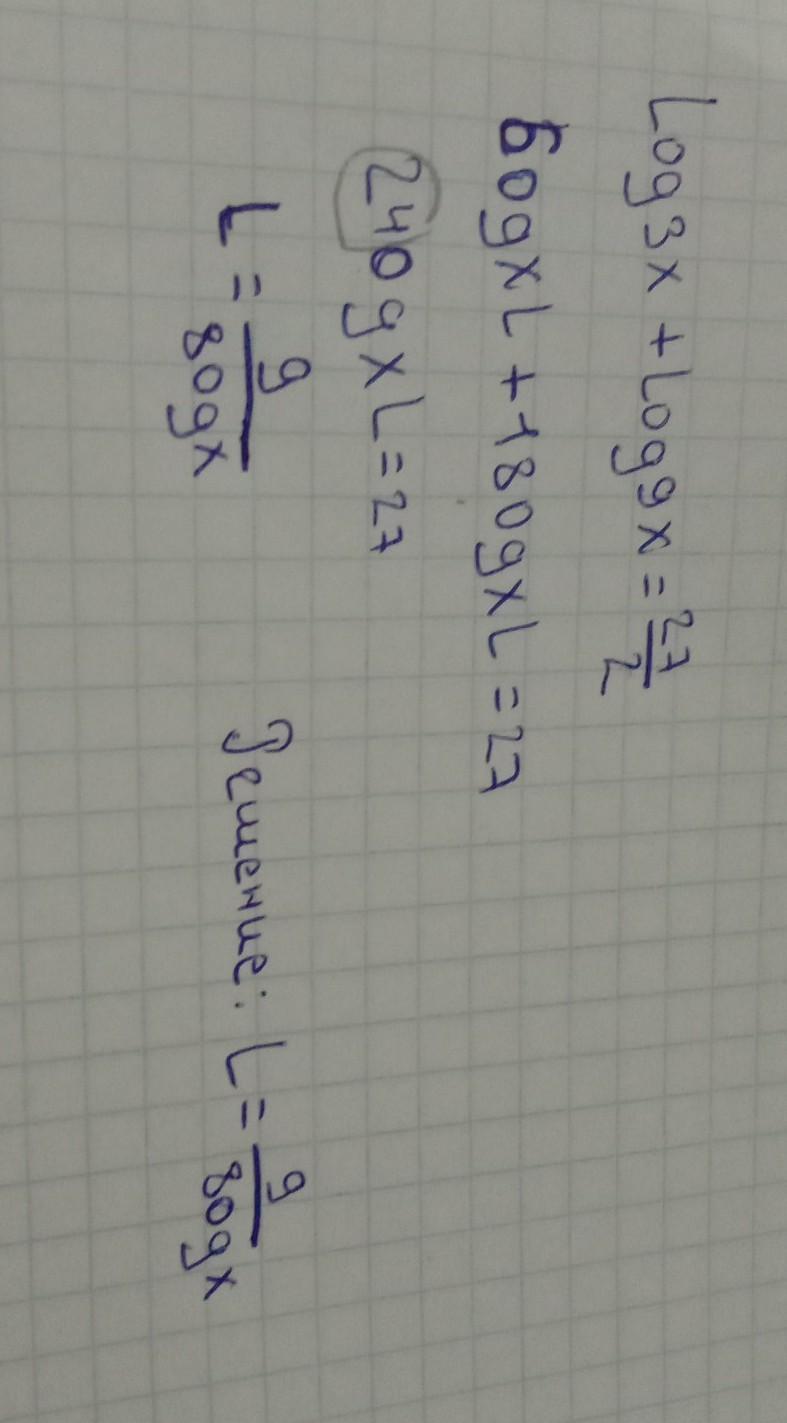 Log3x + Log9x = 27/2
6ogxL + 18ogxL = 27
24ogxL = 27
L = 9/8ogx
Решение: L = 9/8ogx